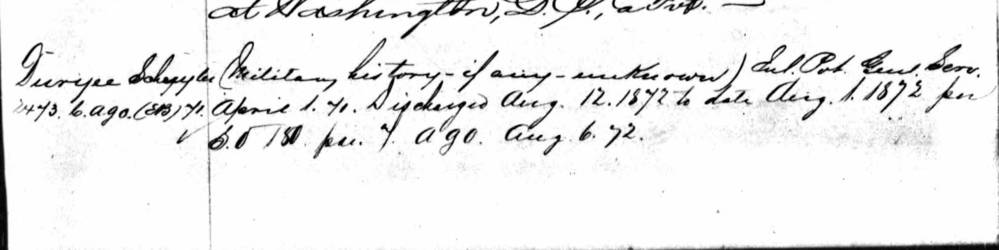 at Washington, D.C., a Pvt. —
Duryee Schuyler (Military history - if any - unknown) Enl. Pvt. Genl. Serv.
2473. b. ago. (EB) 71. April 1. 71. Discharged Aug. 12. 1872 to date Aug. 1. 1872 per
S.O 180. par. 7. A G O. Aug 6. 72.